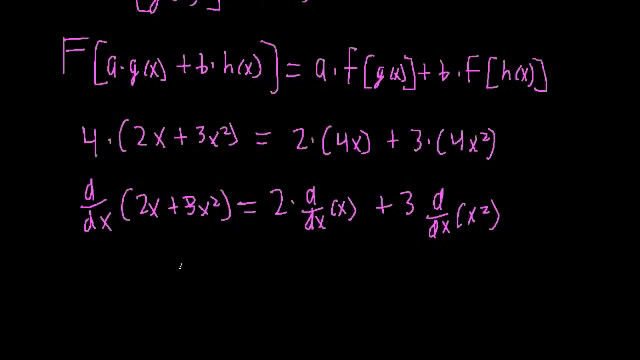 F[a·g(x) + b·h(x)] = a·F[g(x)] + b·F[h(x)]
4·(2x + 3x²) = 2·(4x) + 3·(4x²)
d/dx (2x + 3x²) = 2·d/dx (x) + 3 d/dx (x²)